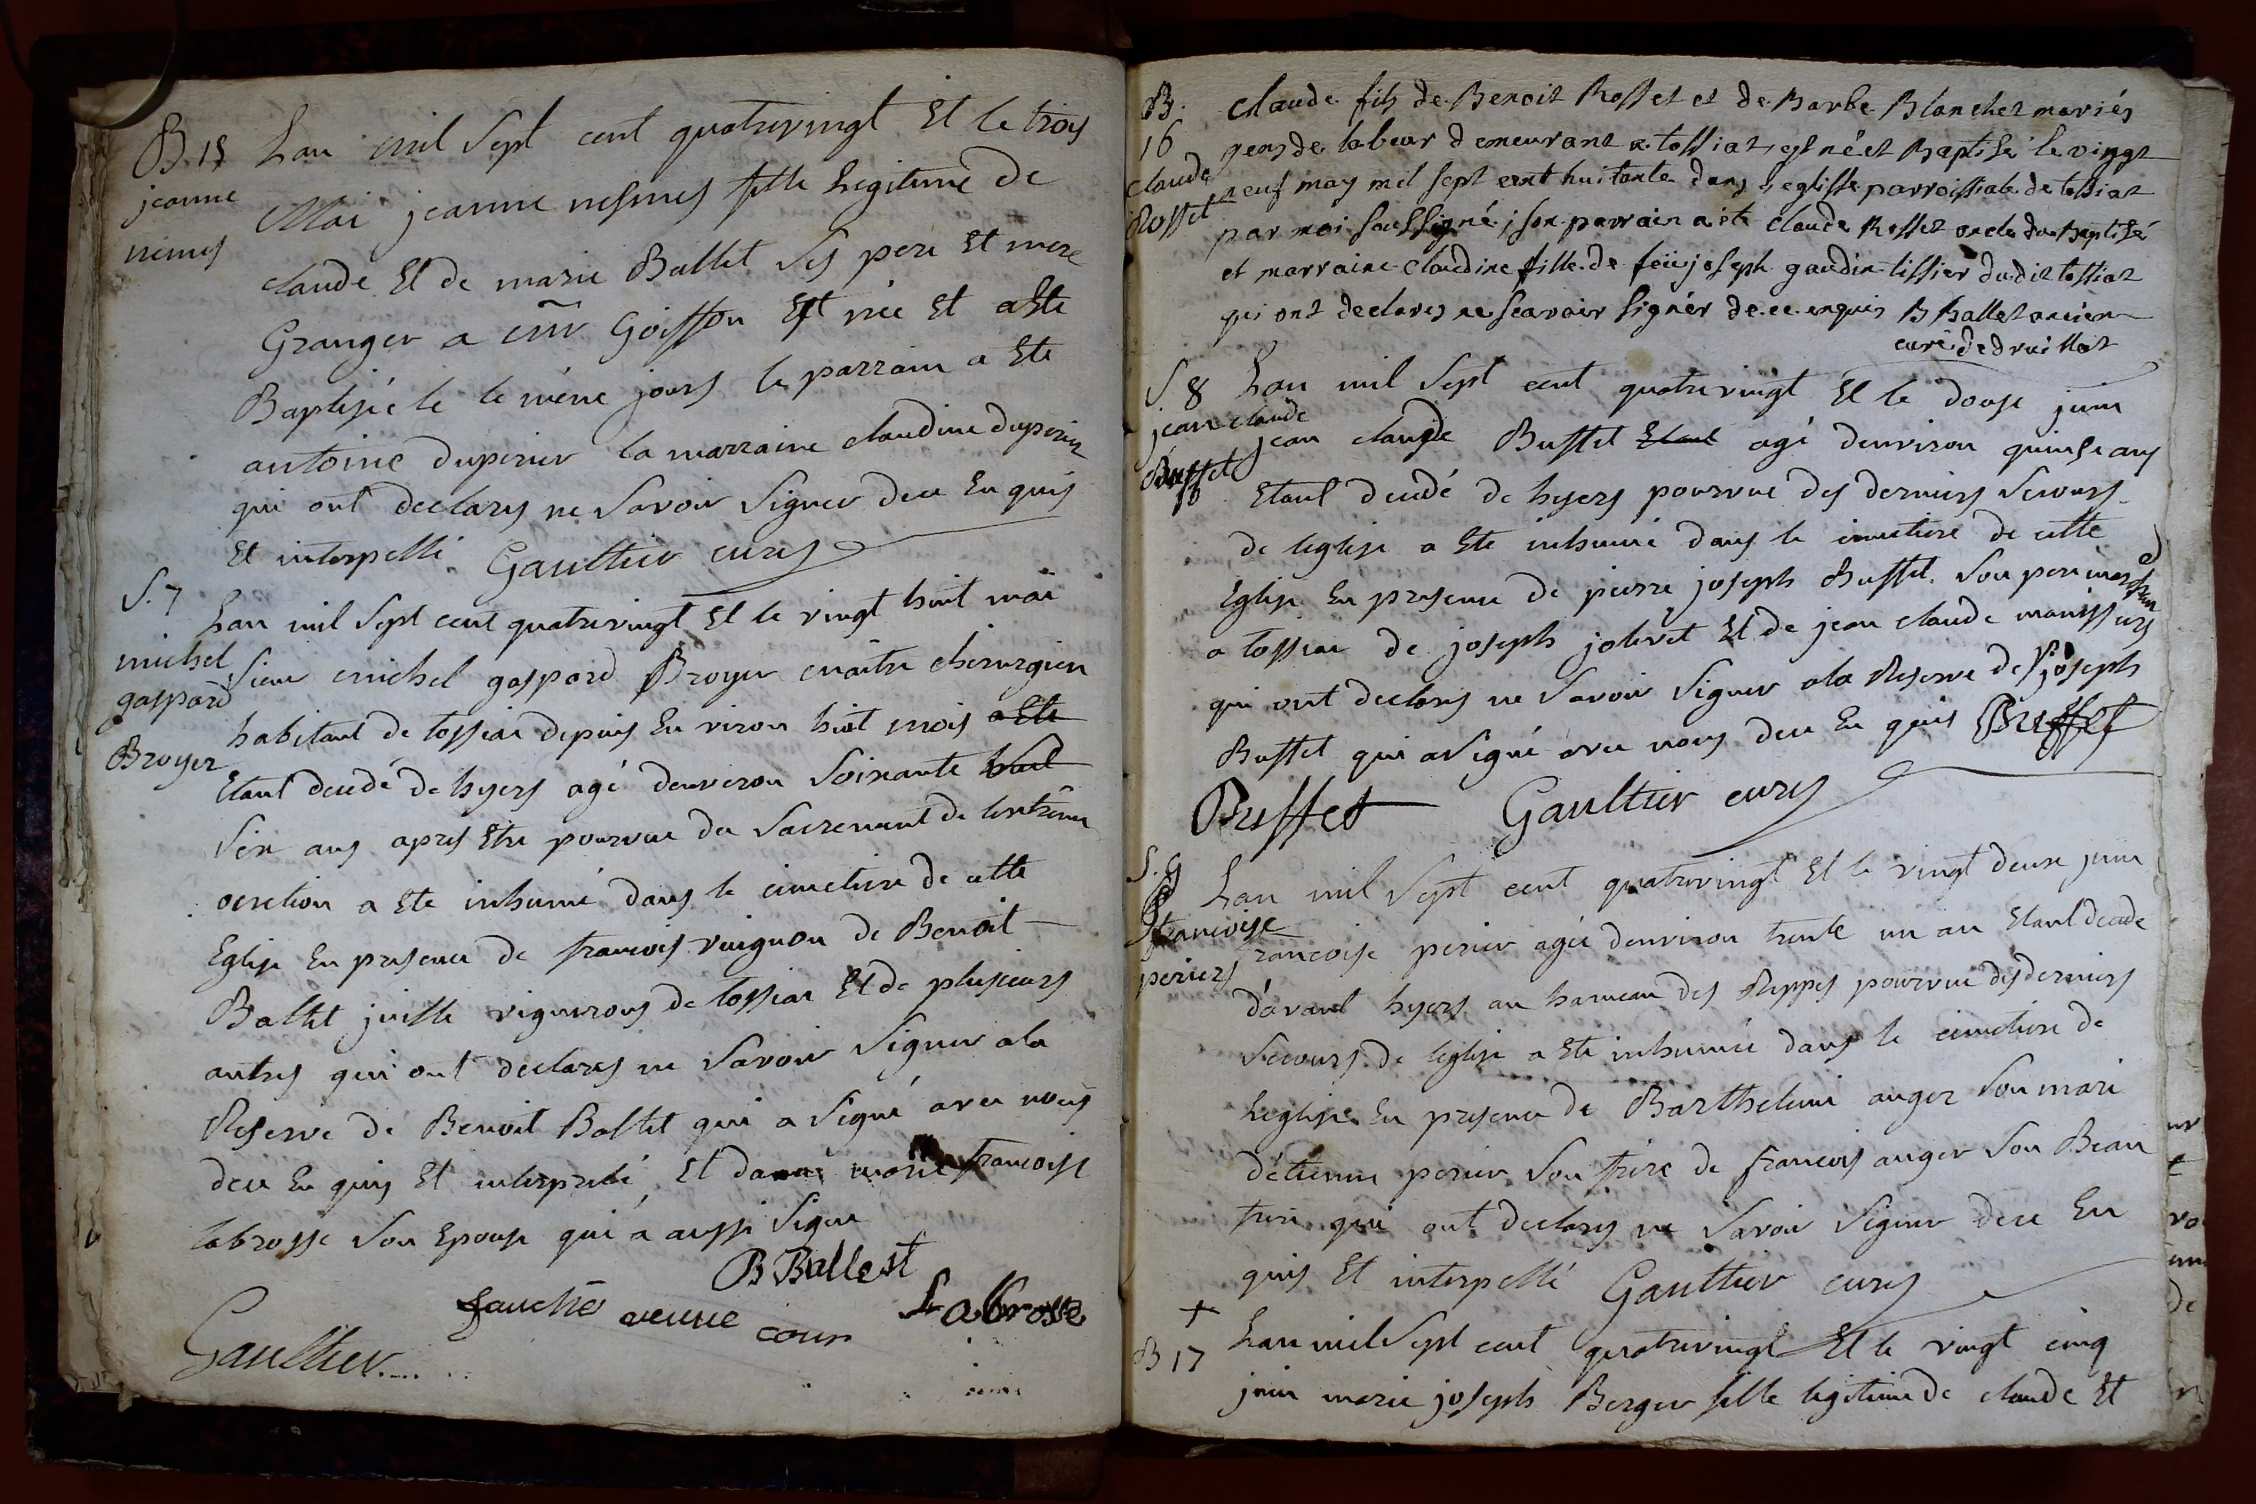 B. 15
jeanne
nemes
Lan mil Sept cent quatrevingt Et le trois
Mai jeanne nesmes fille Legitime de
claude Et de marie Ballet Ses pere Et mere
Granger a Goiffon Est née Et a Ete
Baptisée le le même jours le parrain a Ete
antoine duperier la marraine claudine duperier
qui ont declares ne Savoir Signer dece Enquis
Et interpellé Gaultier curés
S. 7
michel
gaspard
Broyer
Lan mil Sept cent quatrevingt Et le vingt huit mai
Sieur michel gaspard Broyer maitre chirurgien
habitant de tossiat depuis En viron huit mois a Ete
Etant decedé de hyers agé denviron Soixante huit
Six ans apres Etre pourvue du Sacrement de lextrême
onction a Ete inhumé dans le cimetiere de cette
Eglise En presence de francois vuignon de Benoit
Ballet juille vignerons de tossiat Et de plusieurs
autres qui ont declares ne Savoir Signer a la
Reserve de Benoit Ballet qui a Signé avec nous
dece En quis Et interpellé, Et da marie francoise
labrosse Son Epouse qui a aussi Signé
B Ballest
fauché veuve cour Labrosse
Gaultier
B.
16
claude
Rosset
claude fils de Benoit Rosset et de Barbe Blanchet mariés
gens de labeur demeurant a tossiat, est né et Baptisé le vingt
neuf may mil sept cent huitante dans l'eglisse parroissiale de tossiat
par moi soussigné, son parrain a été claude Rosset oncle du Baptisé
et marraine claudine fille de feüe joseph gaudin tissier dudit tossiat
qui ont declarés ne scavoir signér de ce enquis B Ballet ancien
curé de druillat
S. 8
jean claude
Buffet
Lan mil Sept cent quatrevingt Et le douse juin
jean claude Buffet Etant agé denviron quinse ans
Etant decedé de hyers pourvue des derniers Secours
de leglise a Ete inhumé dans le cimetiere de cette
Eglise En presence de pierre joseph Buffet Son pere
a tossiat de joseph jolivet Et de jean claude
qui ont declares ne Savoir Signer a la Reserve de Pr joseph
Buffet qui a Signé avec nous dece En quis Buffet
Buffet Gaultier curés
S. 9
francoise
periers
Lan mil Sept cent quatrevingt Et le vingt deux juin
francoise perier agée denviron trente un an Etant decede
d'avant hyers au hameau des Reppes pourvue des derniers
Secours de leglise a Ete inhumée dans le cimetiere de
Leglise En presence de Barthelemi auger Son mari
détienne perier Son frere de francois auger Son Beau
frere qui ont declares ne Savoir Signer dece En
quis Et interpellé Gaultier curés
+
B 17
Lan mil Sept cent quatrevingt Et le vingt cinq
juin marie joseph Berger fille legitime de claude Et